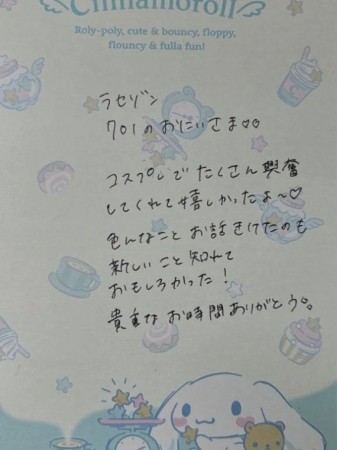 Cinnamoroll
Roly-poly, cute & bouncy, floppy,
flouncy & fulla fun!
ラセゾン
701のおにいさま♡♡
コスプレでたくさん興奮
してくれて嬉しかったよ〜♡
色んなことお話きけたのも
新しいこと知れて
おもしろかった!
貴重なお時間ありがとう。